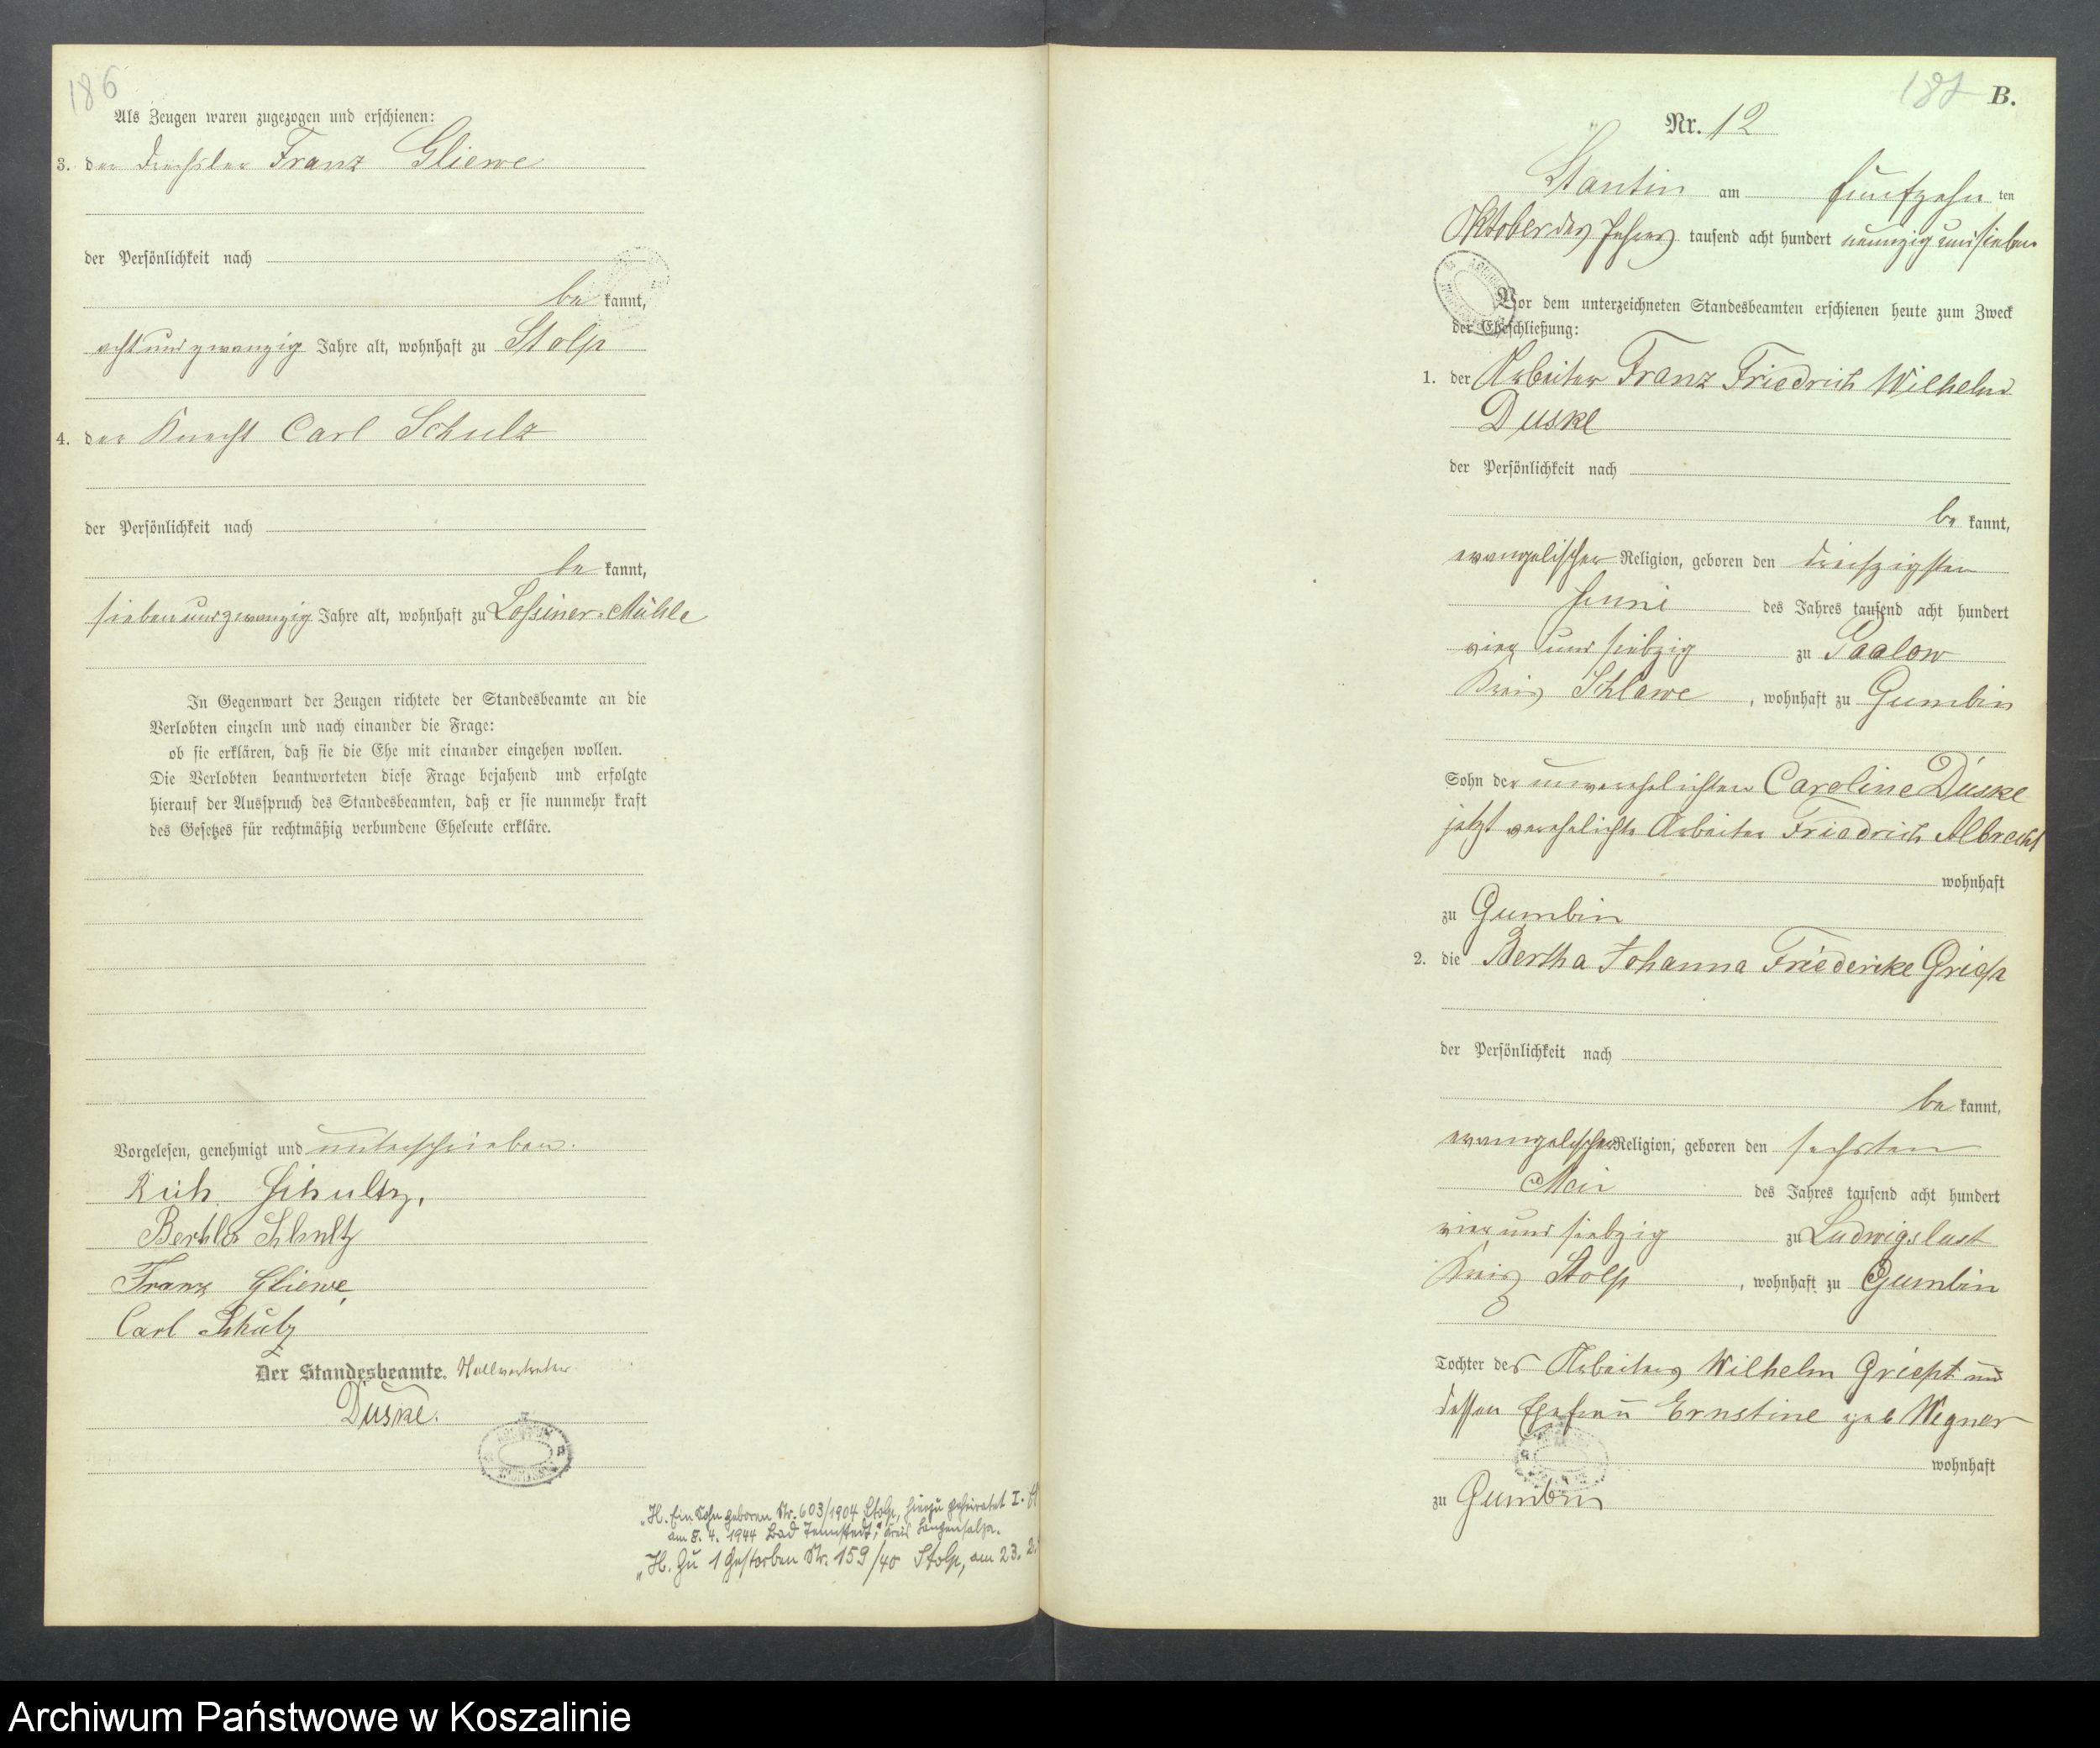 186
Als Zeugen waren zugezogen und erschienen:
3. der Drechsler Franz Gliewe
der Persönlichkeit nach
be kannt,
acht und zwanzig Jahre alt, wohnhaft zu Stolp
4. der Knecht Carl Schulz
der Persönlichkeit nach
be kannt,
sieben und zwanzig Jahre alt, wohnhaft zu Lossiner-Mühle
In Gegenwart der Zeugen richtete der Standesbeamte an die
Verlobten einzeln und nach einander die Frage:
ob sie erklären, daß sie die Ehe mit einander eingehen wollen.
Die Verlobten beantworteten diese Frage bejahend und erfolgte
hierauf der Ausspruch des Standesbeamten, daß er sie nunmehr kraft
des Gesetzes für rechtmäßig verbundene Eheleute erkläre.
Vorgelesen, genehmigt und unterschrieben.
Rich. Schultz.
Bertha Schultz
Franz Gliewe
Carl Schulz
Der Standesbeamte. Stellvertreter
Duske.
„H. Ein Sohn geboren Nr. 603/1904 Stolp, hierzu geheiratet I.
am 8. 4. 1944 Bad Tennstedt, Kreis Langensalza.
„H. Zu 1 gestorben Nr. 159/40 Stolp, am 23. 2.
187 B.
Nr. 12
Stantin am fünfzehn ten
Oktober des Jahres tausend acht hundert neunzig und sieben
Vor dem unterzeichneten Standesbeamten erschienen heute zum Zweck
der Eheschließung:
1. der Arbeiter Franz Friedrich Wilhelm
Duske
der Persönlichkeit nach
be kannt,
evangelischer Religion, geboren den dreißigsten
Juni des Jahres tausend acht hundert
vier und siebzig zu Paalow
Kreis Schlawe, wohnhaft zu Gumbin
Sohn der unverehelichten Caroline Duske
jetzt verehelichte Arbeiter Friedrich Albrecht
wohnhaft
zu Gumbin
2. die Bertha Johanna Friederike Griept
der Persönlichkeit nach
be kannt,
evangelischer Religion, geboren den sechsten
Mai des Jahres tausend acht hundert
vier und siebzig zu Ludwigslust
Kreis Stolp, wohnhaft zu Gumbin
Tochter des Arbeiters Wilhelm Griept und
dessen Ehefrau Ernstine geb Wegner
wohnhaft
zu Gumbin
Archiwum Państwowe w Koszalinie